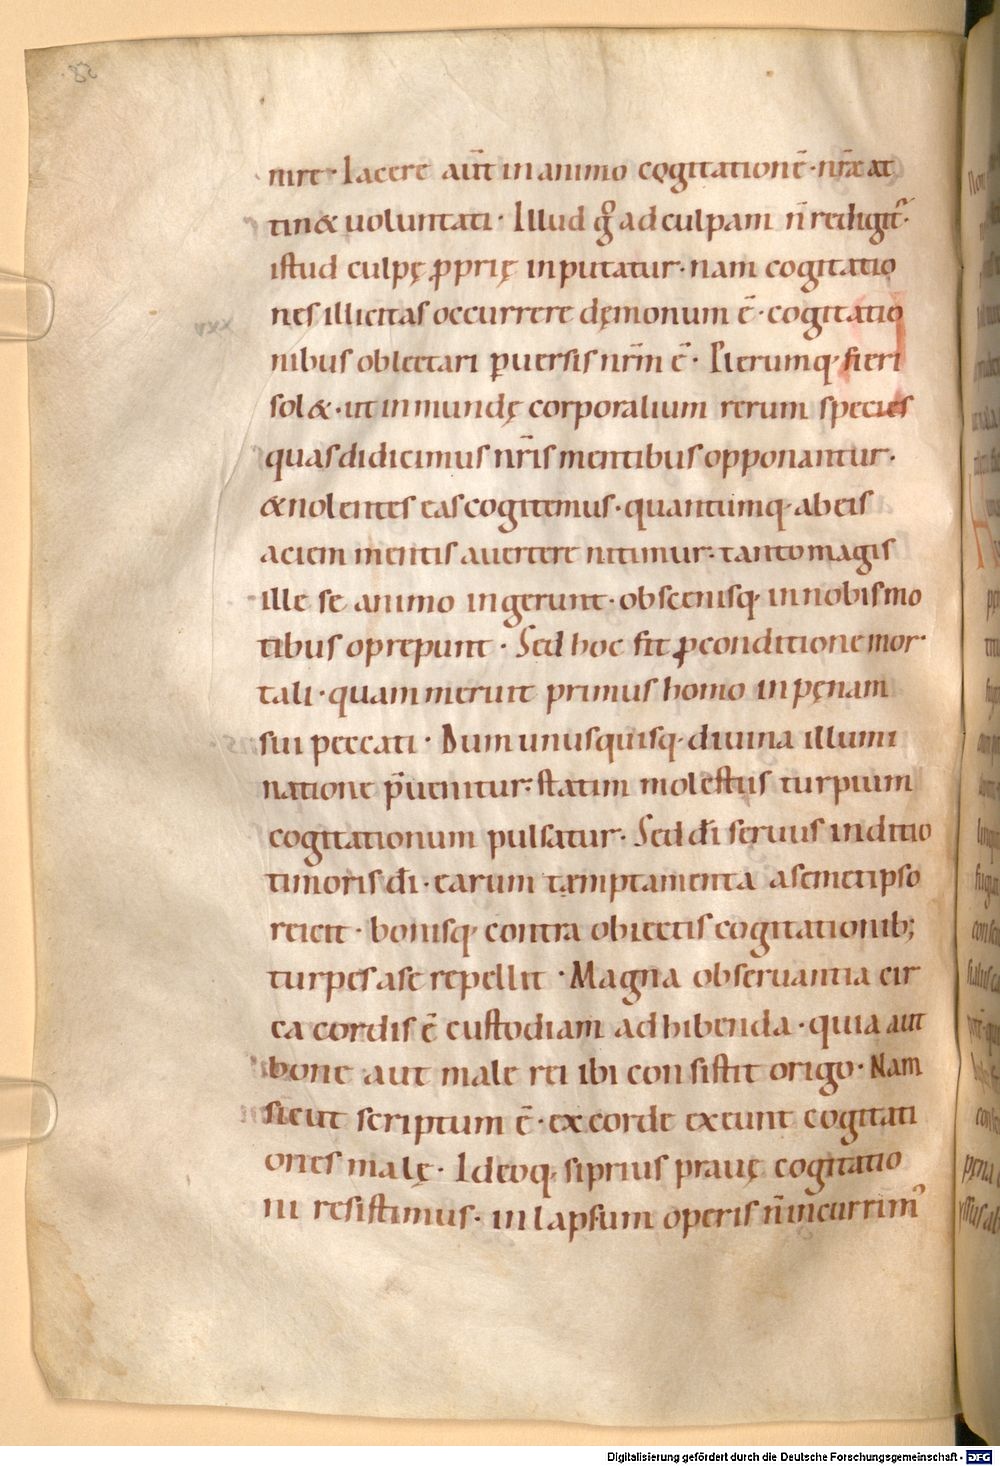 nire · Iacere aūt in animo cogitationē · nr̄ae at
tin& uoluntati · Illud g̊ ad culpam n̄ redigit᷑ ·
istud culpę ꝓprię inputatur · nam cogitatio
nes illicitas occurrere dęmonum ē · cogitatio
nibus oblectari ꝑuersis nr̄m ē · Plerumq· fieri
sol& · ut inmundę corporalium rerum species
quas didicimus nr̄is mentibus opponantur ·
& nolentes eas cogitemus · quantumq· ab eis
aciem mentis auertere nitimur · tanto magis
ille se animo ingerunt · obscenisq· in nobis mo
tibus oprepunt · Sed hoc fit ꝓ conditione mor
tali · quam meruit primus homo in pęnam
sui peccati · Dum unusquisq· diuina illumi
natione p̄uenitur · statim molestus turpium
cogitationum pulsatur · Sed dī seruus inditio
timoris dī · earum tæmptamenta a semetipso
reicit · bonisq· contra obiectis cogitationib;
turpes a se repellit · Magna obseruantia cir
ca cordis ē custodiam adhibenda · quia aut
bone aut male rei ibi consistit origo · Nam
sicut scriptum ē · ex corde exeunt cogitati
ones malę · Ideoq· si prius prauę cogitatio
ni resistimus · in lapsum operis n̄ incurrim᾽
Digitalisierung gefördert durch die Deutsche Forschungsgemeinschaft - DFG